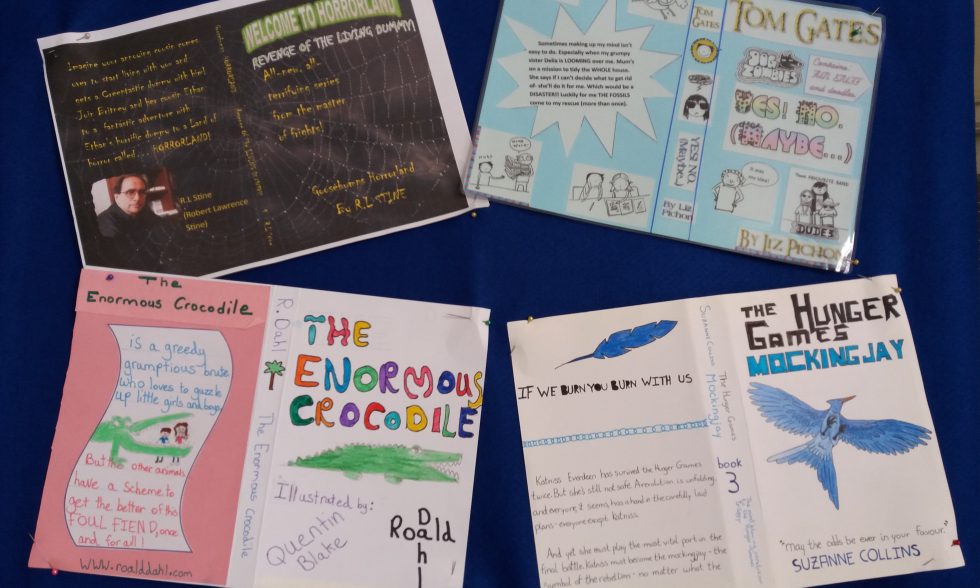 Imagine your annoying cousin comes
over to start living with you and
gets a Greentastic dummy with him!
Join Britney and her cousin Ethan
to a fantastic adventure with
Ethan's horrific dummy to a Land of
horror called.... HORRORLAND!
R.L Stine
(Robert Lawrence
Stine)
WELCOME TO HORRORLAND
REVENGE OF THE LIVING DUMMY
All-new, all-
terrifying series
from the master
of frights!
Goosebumps Horrorland
By R.L STINE
Sometimes making up my mind isn't
easy to do. Especially when my grumpy
sister Delia is LOOMING over me. Mum's
on a mission to tidy the WHOLE house.
She says if I can't decide what to get rid
of- she'll do it for me. Which would be a
DISASTER!! Luckily for me THE FOSSILS
come to my rescue (more than once).
TOM
GATES
YES! NO.
(Maybe...)
By Liz
Pichon
TOM GATES
DUDE ZOMBIES
YES! NO.
(MAYBE...)
It was
my idea!
Their FAVOURITE BAND
DUDE3
By LIZ PICHON
The
Enormous Crocodile
is a greedy
grumptious brute
who loves to guzzle
up little girls and boys
But the other animals
have a Scheme to
get the better of this
FOUL FIEND, once
and for all!
www.roalddahl.com
R. Dahl
The Enormous Crocodile
THE
ENORMOUS
CROCODILE
Illustrated by:
Quentin
Blake
Roald
Dahl
IF WE BURN YOU BURN WITH US
Katniss Everdeen has survived the Huger Games
twice. But she's still not safe. A revolution is unfolding,
and everyone, it seems, has a hand in the carefully laid
plans - everyone except Katniss.
And yet she must play the most vital part in the
final battle. Katniss must become the mockingjay - the
symbol of the rebellion - no matter what the
SUZANNE COLLINS
The Hunger Games
Mockingjay
book
3
THE HUNGER
GAMES
MOCKINGJAY
"May the odds be ever in your favour."
SUZANNE COLLINS